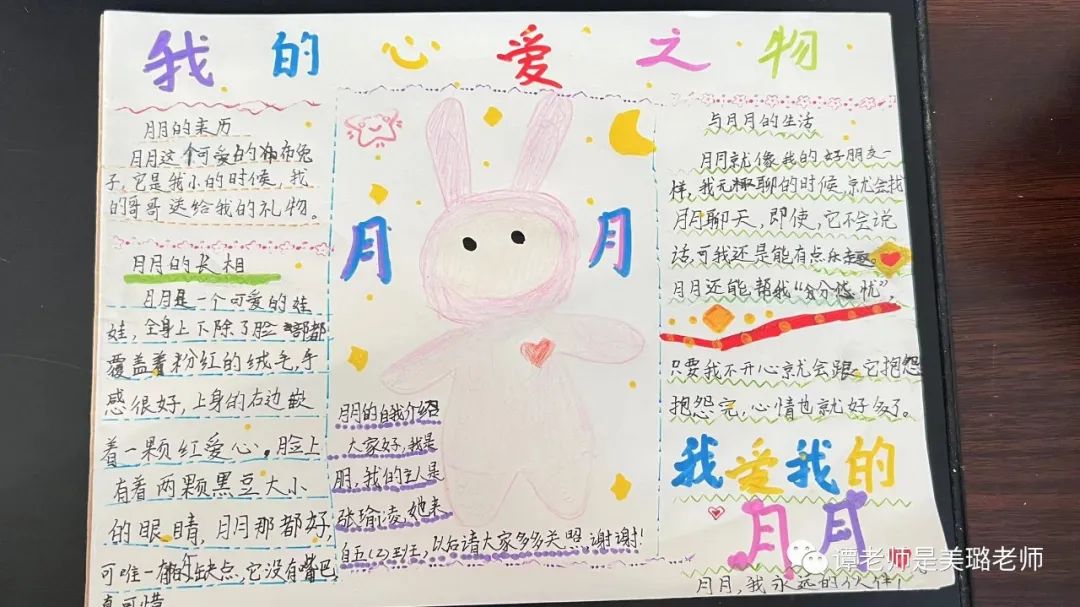 我的心爱之物
月月的来历
月月这个可爱的布兔
子,它是我小的时候,我
的哥哥送给我的礼物。
月月的长相
月月是一个可爱的娃
娃,全身上下除了脸部都
覆盖着粉红的绒毛,手
感很好,上身的右边嵌
着一颗红爱心。脸上
有着两颗黑豆大小
的眼睛,月月那都好,
可唯一的缺点,它没有嘴巴,
真可惜
月月
月月的自我介绍
大家好,我是
月,我的主人是
张瑜凌,她来
自五(2)班,以后请大家多多关照,谢谢!
与月月的生活
月月就像我的好朋友一
样,我无聊的时候就会找
月月聊天,即使,它不会说
话,可我还是能有点乐趣。
月月还能帮我“分忧”,
只要我不开心就会跟它抱怨
抱怨完,心情也就好多了。
我爱我的
月月
月月,我永远的伙伴!
谭老师是美璐老师